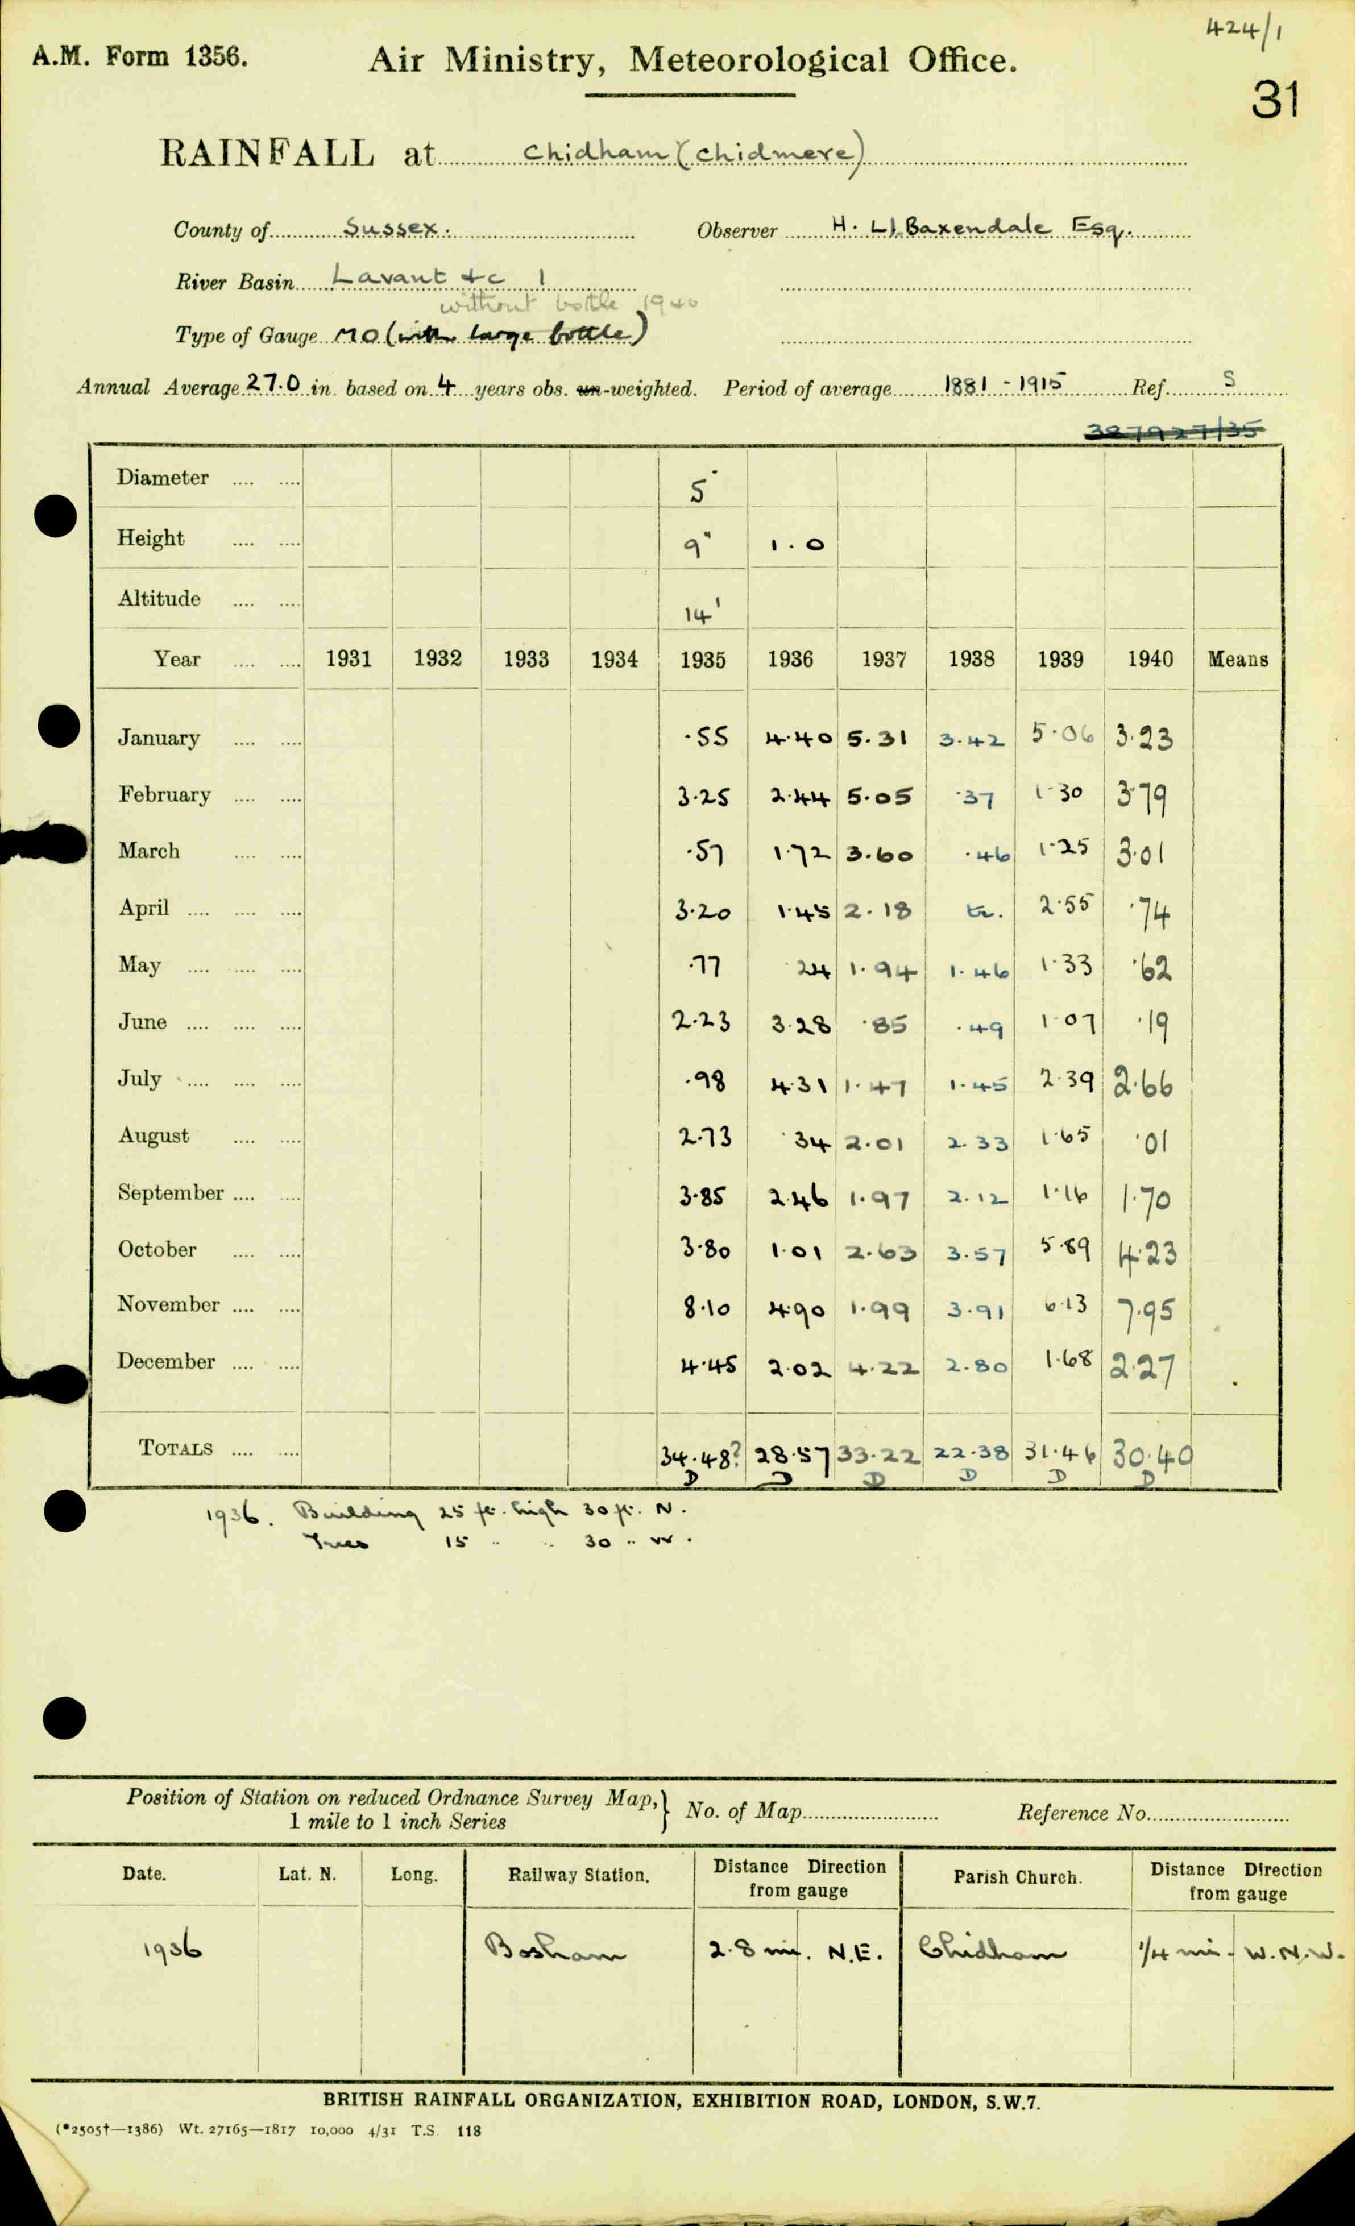 424/1
A.M. Form 1356. Air Ministry, Meteorological Office.
31
RAINFALL at Chidham (Chidmere)
County of Sussex. Observer H. Ll. Baxendale Esq.
River Basin Lavant &c 1
without bottle 1940
Type of Gauge MO (with large bottle)
Annual Average 27.0 in. based on 4 years obs. un-weighted. Period of average 1881 - 1915 Ref. S
387927/35
Diameter .... .... 5"
Height .... .... 9" 1.0
Altitude .... .... 14'
Year .... .... 1931 1932 1933 1934 1935 1936 1937 1938 1939 1940 Means
January .... .... .55 4.40 5.31 3.42 5.06 3.23
February .... .... 3.25 2.44 5.05 .37 1.30 3.79
March .... .... .57 1.72 3.60 .46 1.25 3.01
April .... .... .... 3.20 1.45 2.18 tr. 2.55 .74
May .... .... .... .77 .24 1.94 1.46 1.33 .62
June .... .... .... 2.23 3.28 .85 .49 1.07 .19
July .... .... .... .98 4.31 1.47 1.45 2.39 2.66
August .... .... 2.73 .34 2.01 2.33 1.65 .01
September .... .... 3.85 2.46 1.97 2.12 1.16 1.70
October .... .... 3.80 1.01 2.63 3.57 5.89 4.23
November .... .... 8.10 4.90 1.99 3.91 6.13 7.95
December .... .... 4.45 2.02 4.22 2.80 1.68 2.27
TOTALS .... .... 34.48? 28.57 33.22 22.38 31.46 30.40
D D D D D D
1936. Building 25 ft. high 30 ft. N.
Trees 15 " " 30 " W.
Position of Station on reduced Ordnance Survey Map, } No. of Map Reference No.
1 mile to 1 inch Series
Date. Lat. N. Long. Railway Station. Distance Direction from gauge Parish Church. Distance Direction from gauge
1936 Bosham 2.8 mi. N.E. Chidham 1/4 mi. W.N.W.
BRITISH RAINFALL ORGANIZATION, EXHIBITION ROAD, LONDON, S.W.7.
(*2505†—1386) Wt. 27165—1817 10,000 4/31 T.S. 118